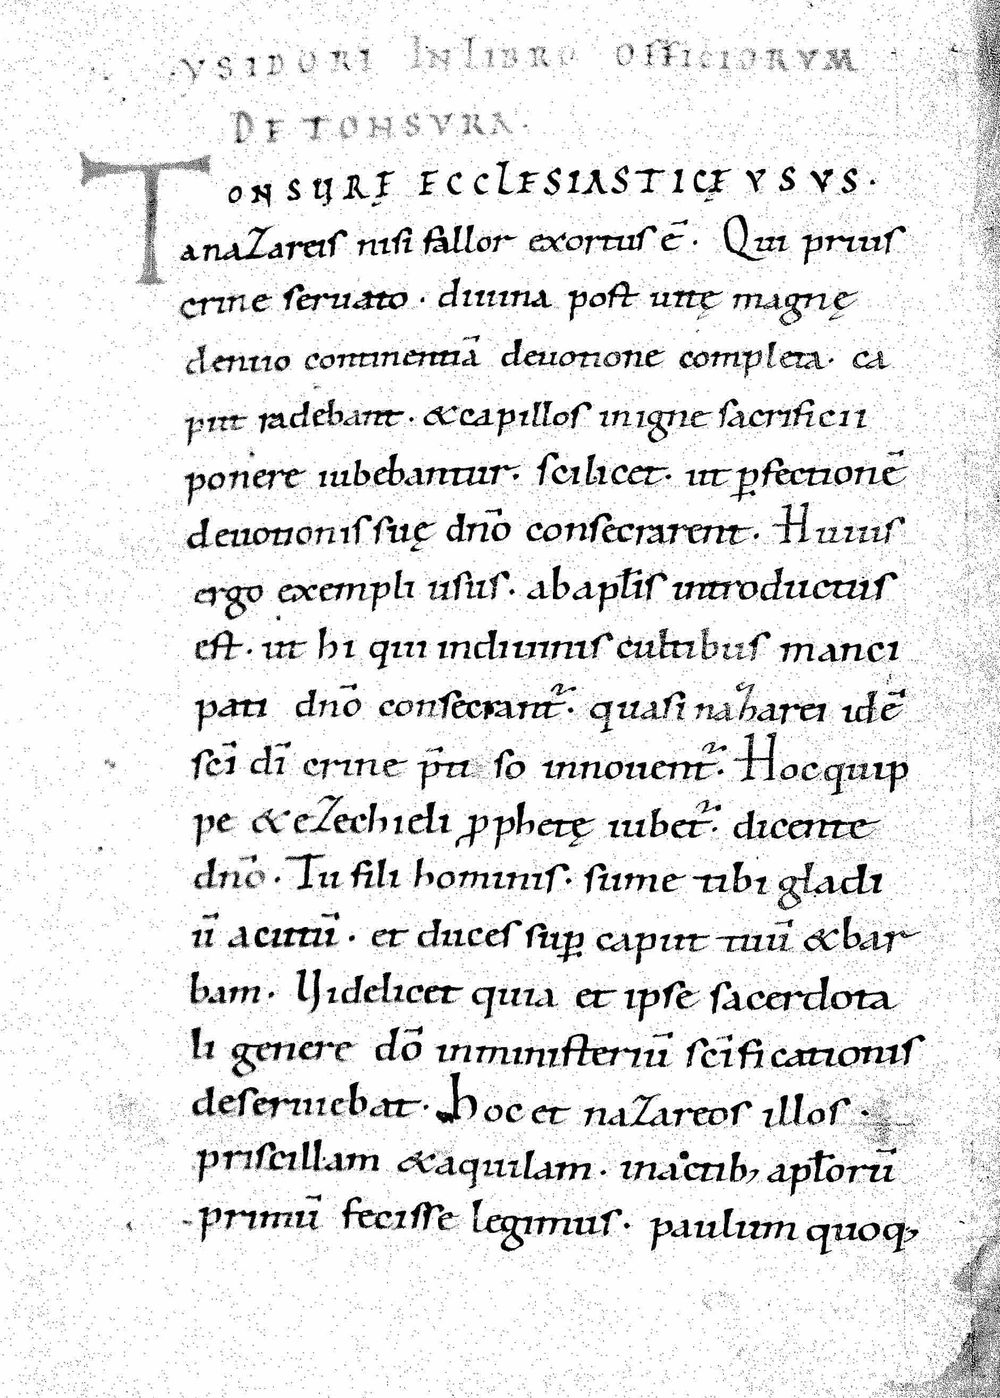 YSIDORI IN LIBRO OFFICIORVM
DE TONSVRA.
TONSURĘ ECCLESIASTICĘ VSVS.
a naZareis nisi fallor exortus ē. Qui prius
crine seruato. diuina post uitę magnę
denuo continentiā deuotione completa. ca
put radebant. & capillos in igne sacrificii
ponere iubebantur. scilicet. ut p̲fectionē
deuotionis suę dn̄o consecrarent. Huius
ergo exempli usus. ab apl̄is introductus
est. ut hi qui in diuinis cultibus manci
pati dn̄o consecrant᷑. quasi naharei idē
sc̄i dī crine p̄ti so innouent᷑. Hoc quip
pe & eZechieli ꝓphetę iubet᷑. dicente
dn̄o. Tu fili hominis. sume tibi gladi
ū acutū. et duces suꝑ caput tuū & bar
bam. Videlicet quia et ipse sacerdota
li genere dō in ministeriū sc̄ificationis
deseruiebat. Hoc et naZareos illos.
priscillam & aquilam. in actib; apl̄orū
primū fecisse legimus. paulum quoq;